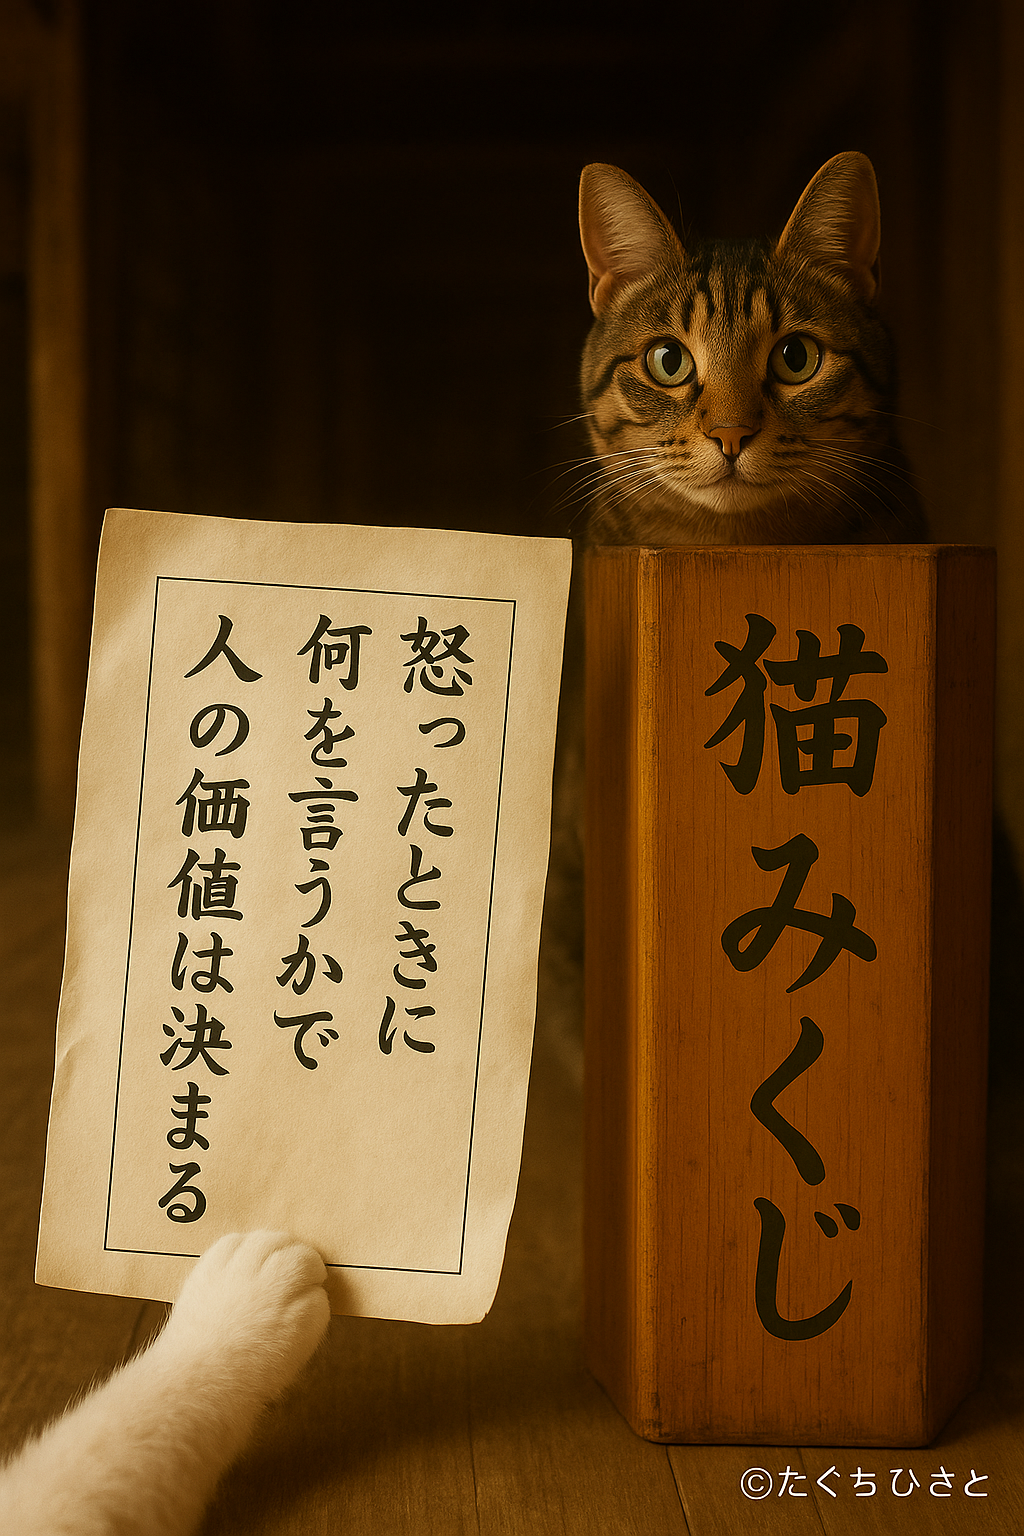 怒ったときに
何を言うかで
人の価値は決まる
猫みくじ
©たぐちひさと